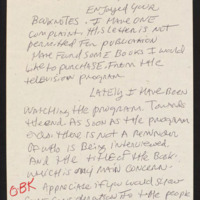 Enjoyed your
Booknotes. I have one
complaint this letter is not
permitted for publication
Have found some Books I would
like to purchase. From the
television program
Lately I have been
watching the program towards
the end. As soon as the program
ends there is not a reminder
of who is being interviewed
And the title of the Book
which is my main concern.
OBK
Appreciate if you would show
some consideration to the people